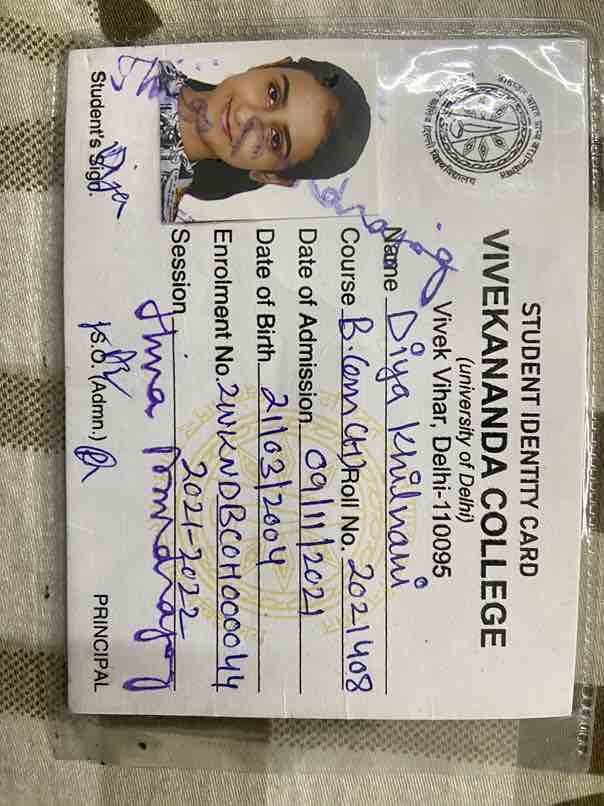 STUDENT IDENTITY CARD
VIVEKANANDA COLLEGE
(university of Delhi)
Vivek Vihar, Delhi-110095
Name Diya Khilnani
Course B.Com (H) Roll No. 2021408
Date of Admission 09/11/2021
Date of Birth 21/03/2004
Enrolment No. 21VKNDBCOH000044
Session 2021-2022
Student's Sign. Diya
S.O. (Admn.)
PRINCIPAL